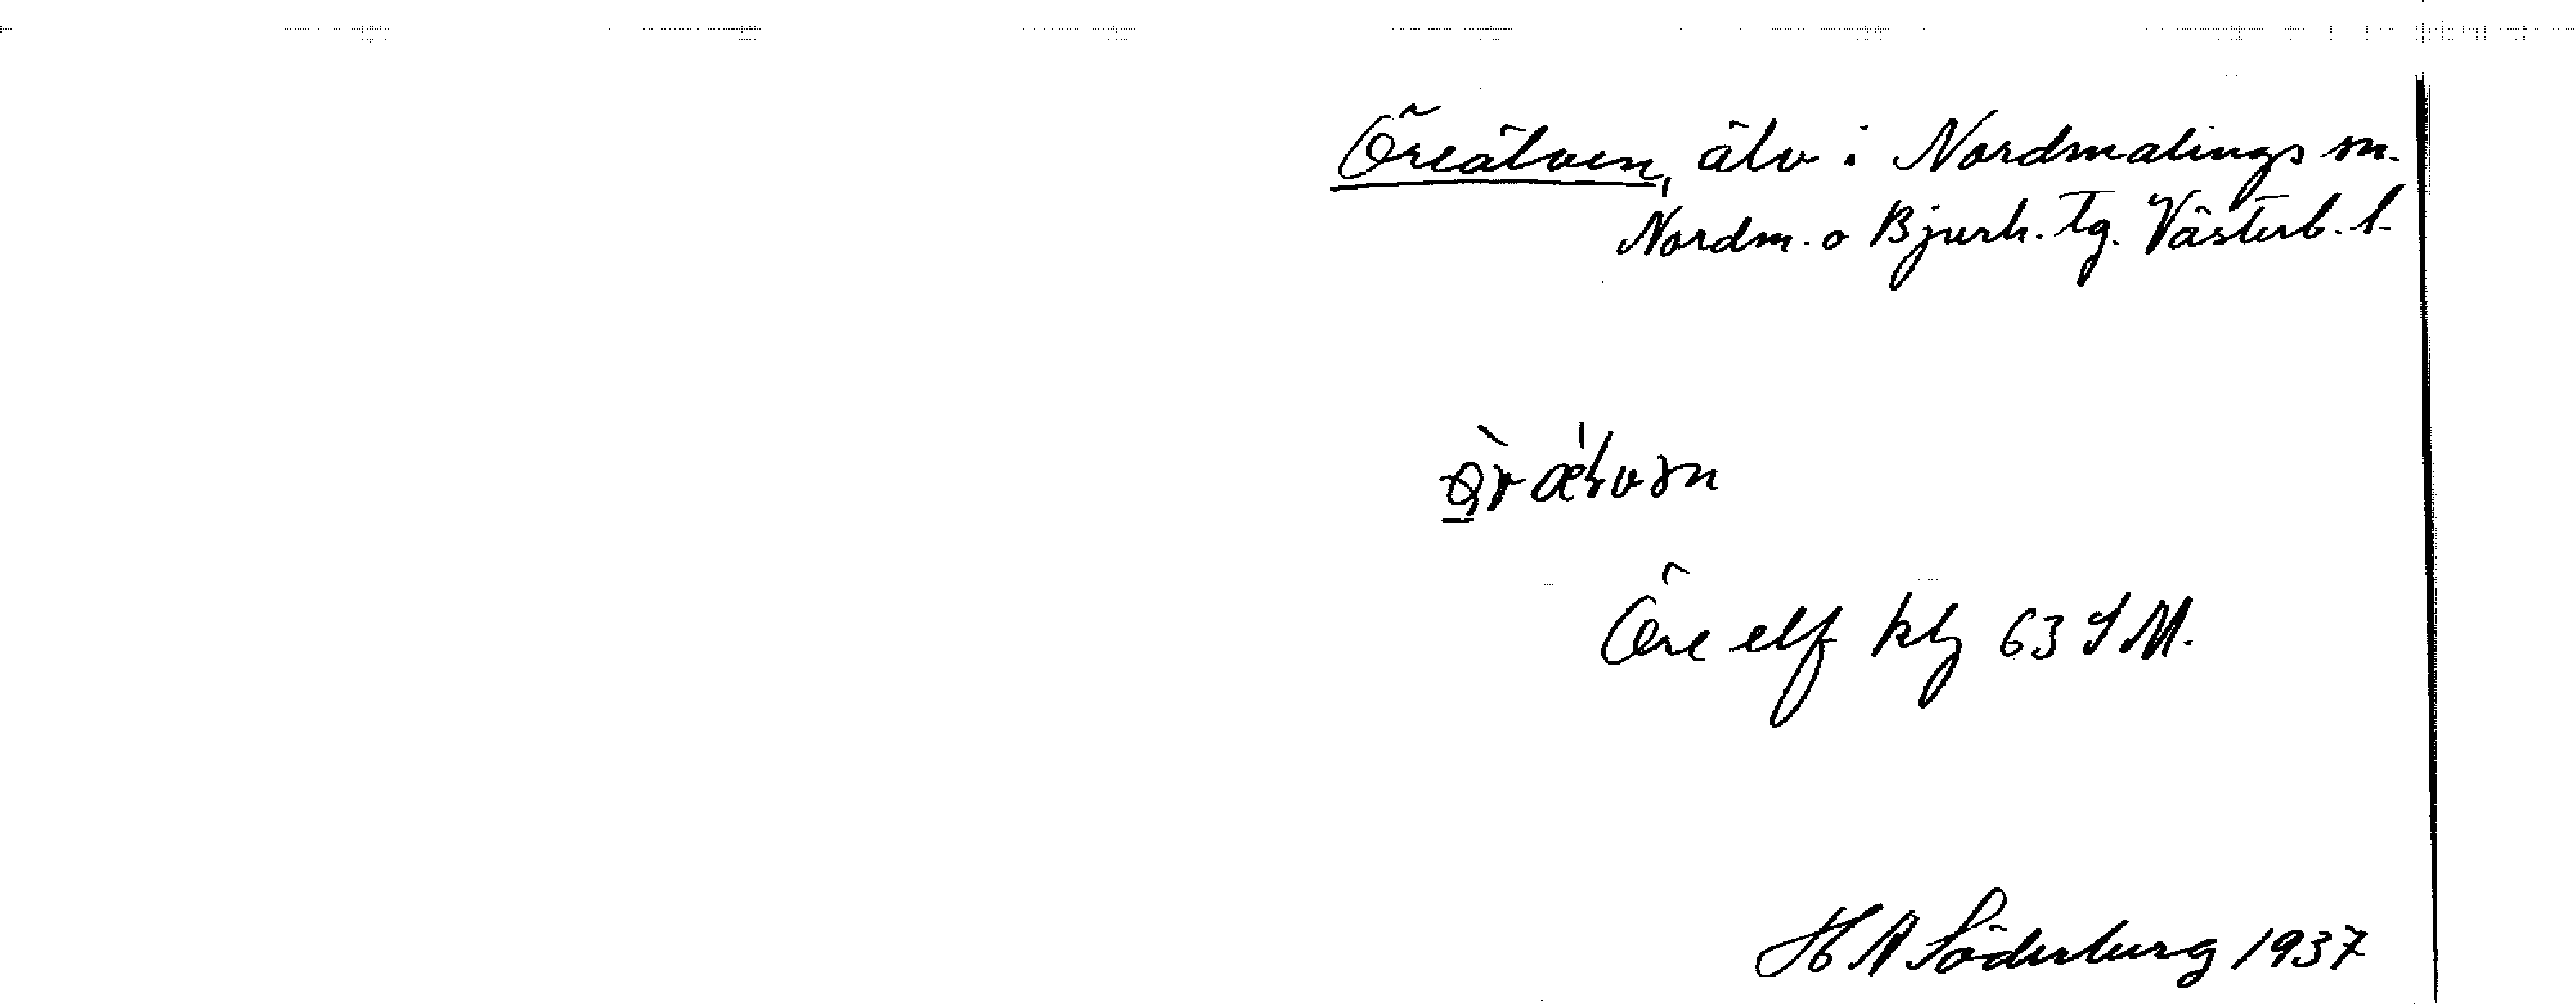 Öreälven, älv i Nordmalings sn.
Nordm. o Bjurh. tg. Västerb. l.
Öre elf kbl 63 SM.
H A Söderberg 1937